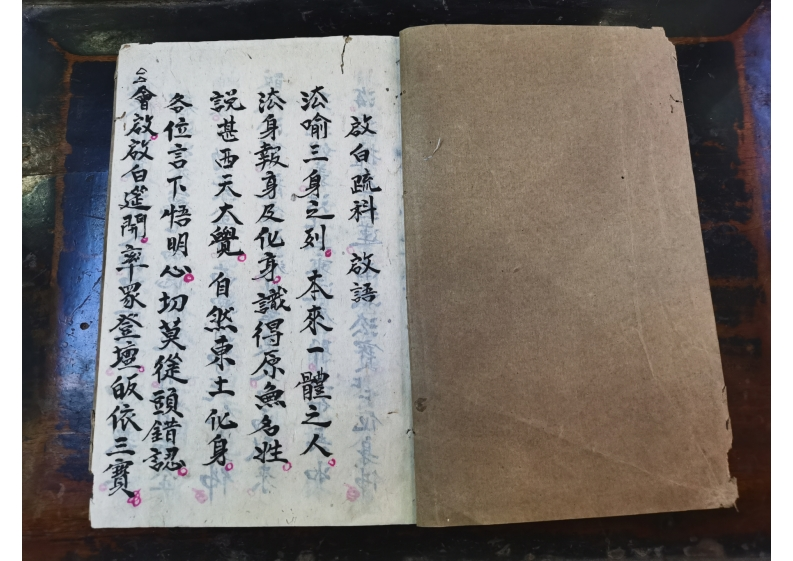 啟白疏科 啟語
法喻三身之列 本來一體之人
法身報身及化身 識得原無名姓
說甚西天大覺 自然東土化身
各位言下悟明心 切莫從頭錯認
會啟啟白筵開 率眾登壇皈依三寶